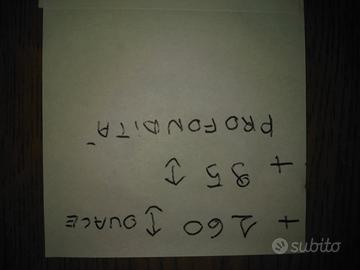 + 160 ↕ OVALE
+ 95 ↕
PROFONDITÀ
subito